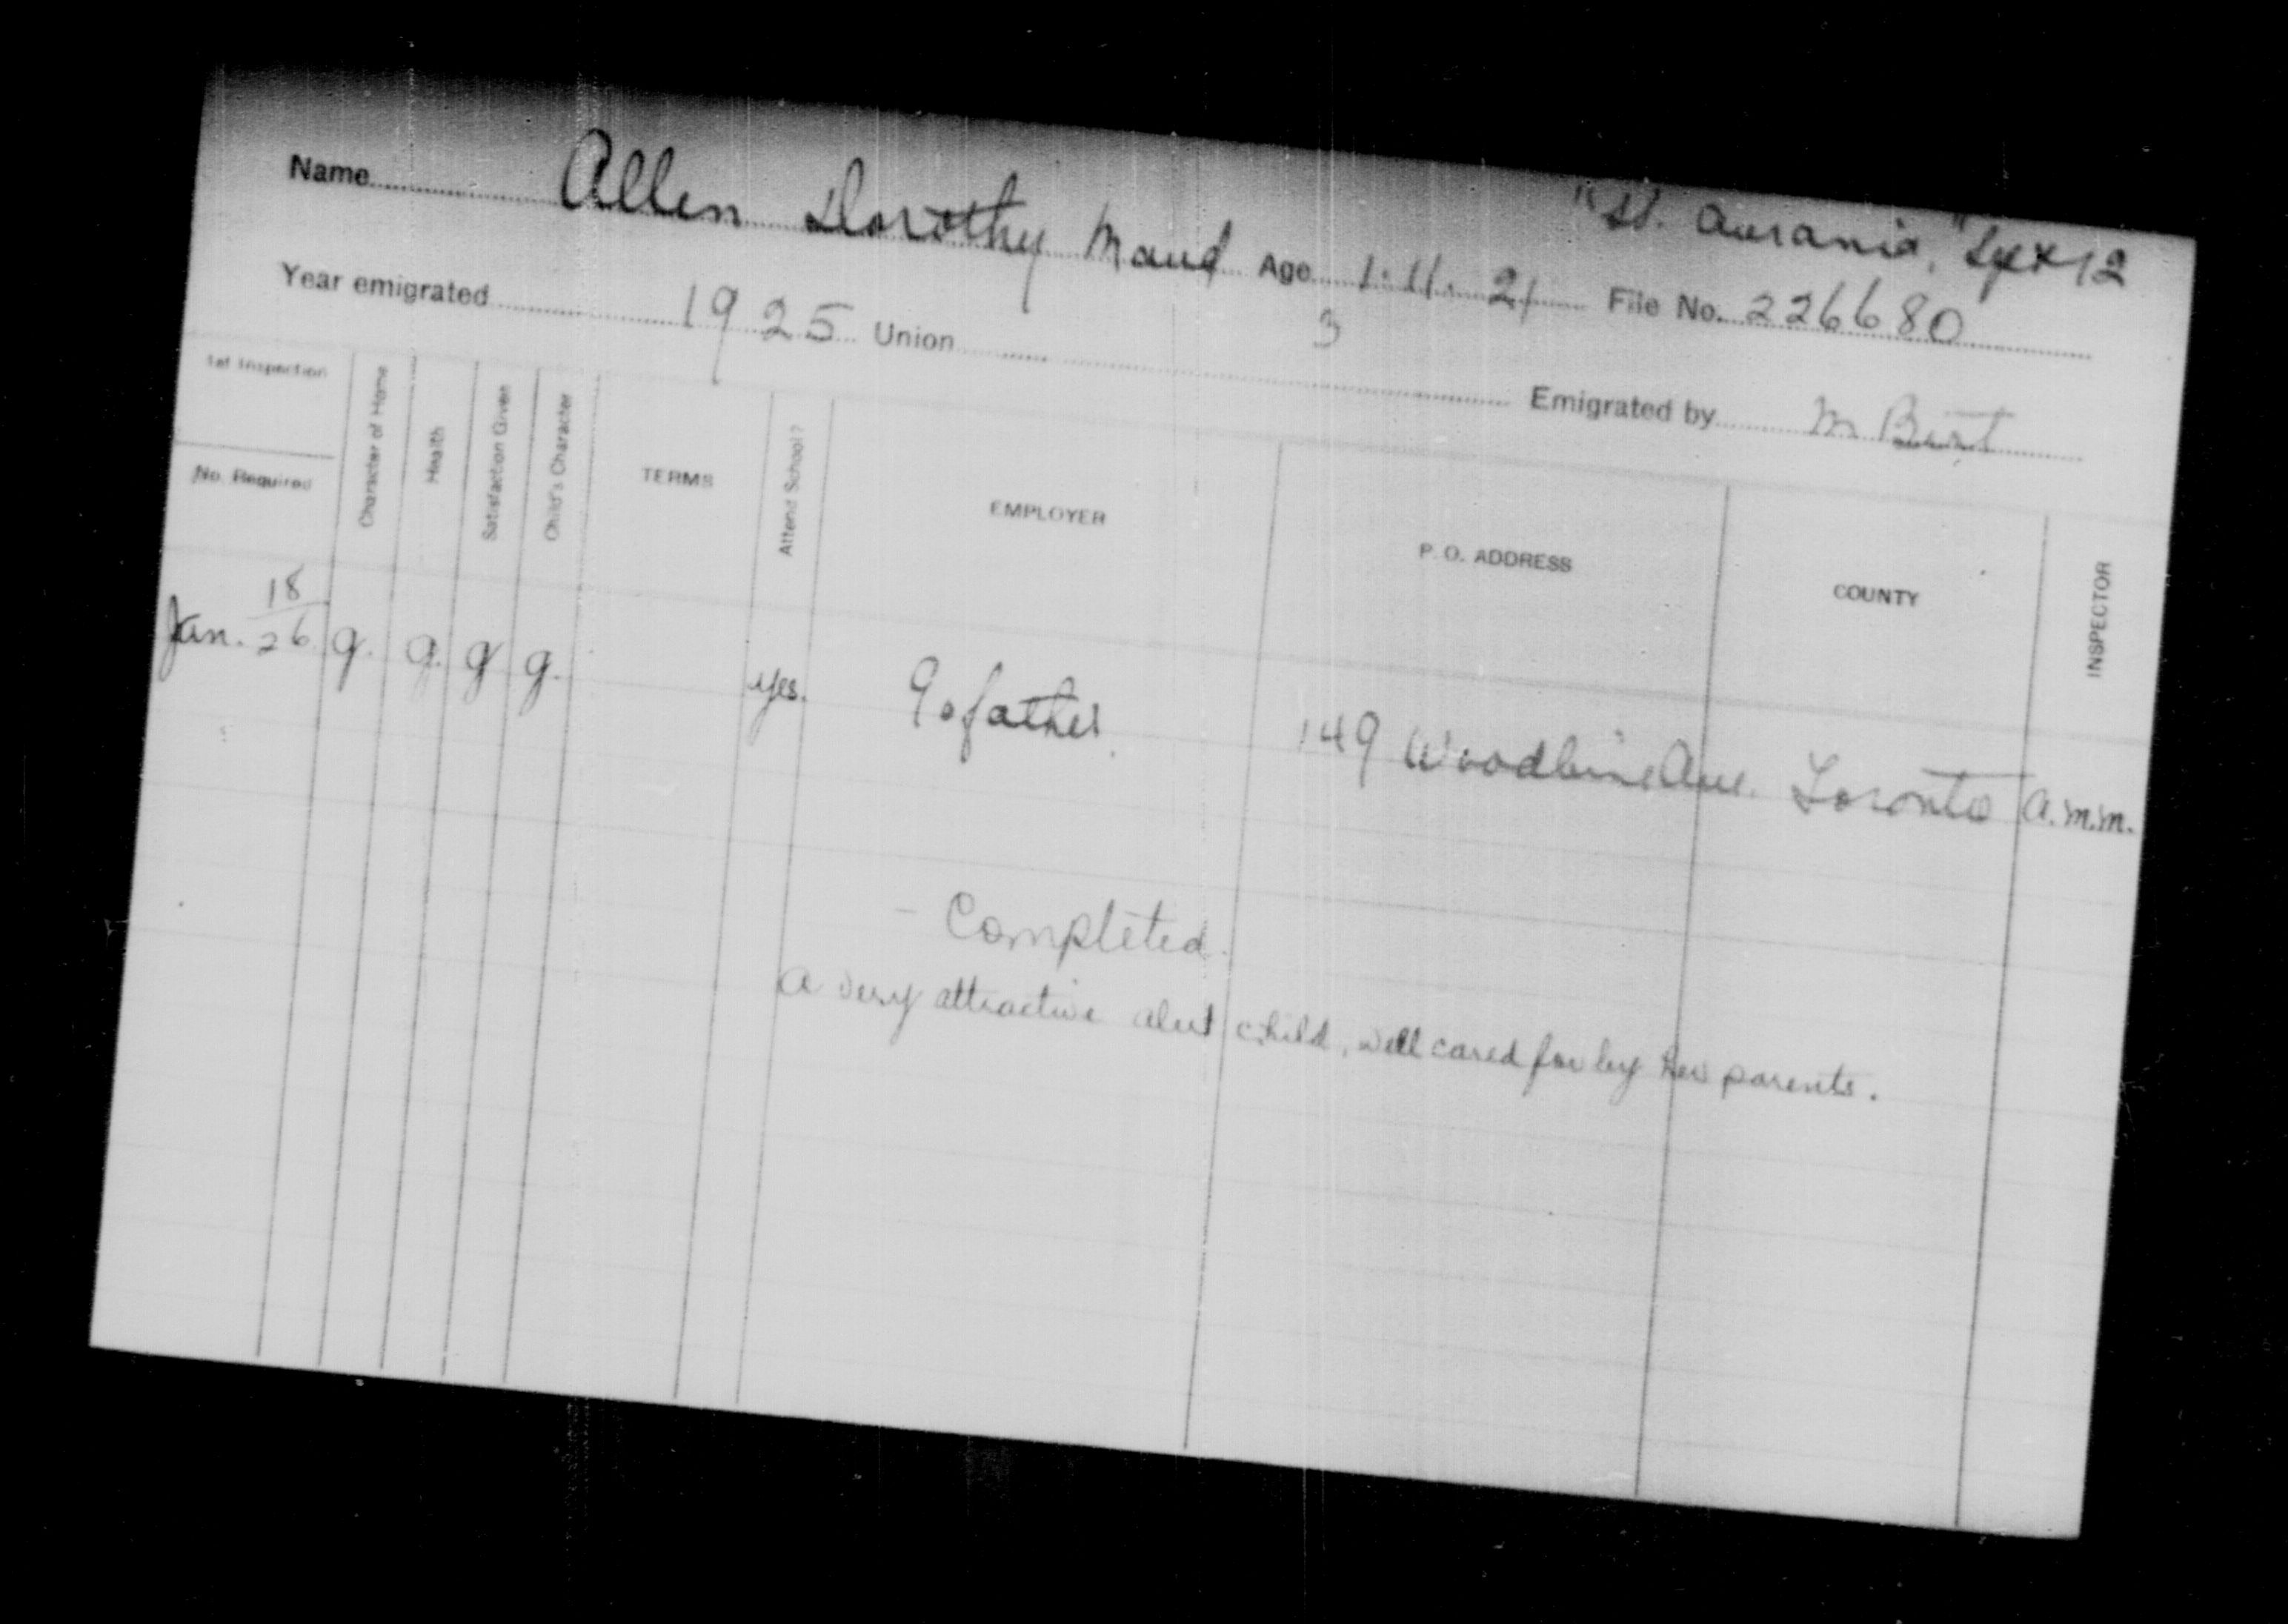 "St. Aurania," Sept 12
Name Allen Dorothy Maud Age 1.11.21 File No. 226680
Year emigrated 1925 Union 3 Emigrated by M Birt
1st Inspection
No. Required
Character of Home
Health
Satisfaction Given
Child's Character
TERMS
Attend School?
EMPLOYER
P. O. ADDRESS
COUNTY
INSPECTOR
Jan. 18/26 g. g. g g. yes. % father 149 Woodbine Ave. Toronto A.M.M.
- Completed.
A very attractive alert child, well cared for by her parents.